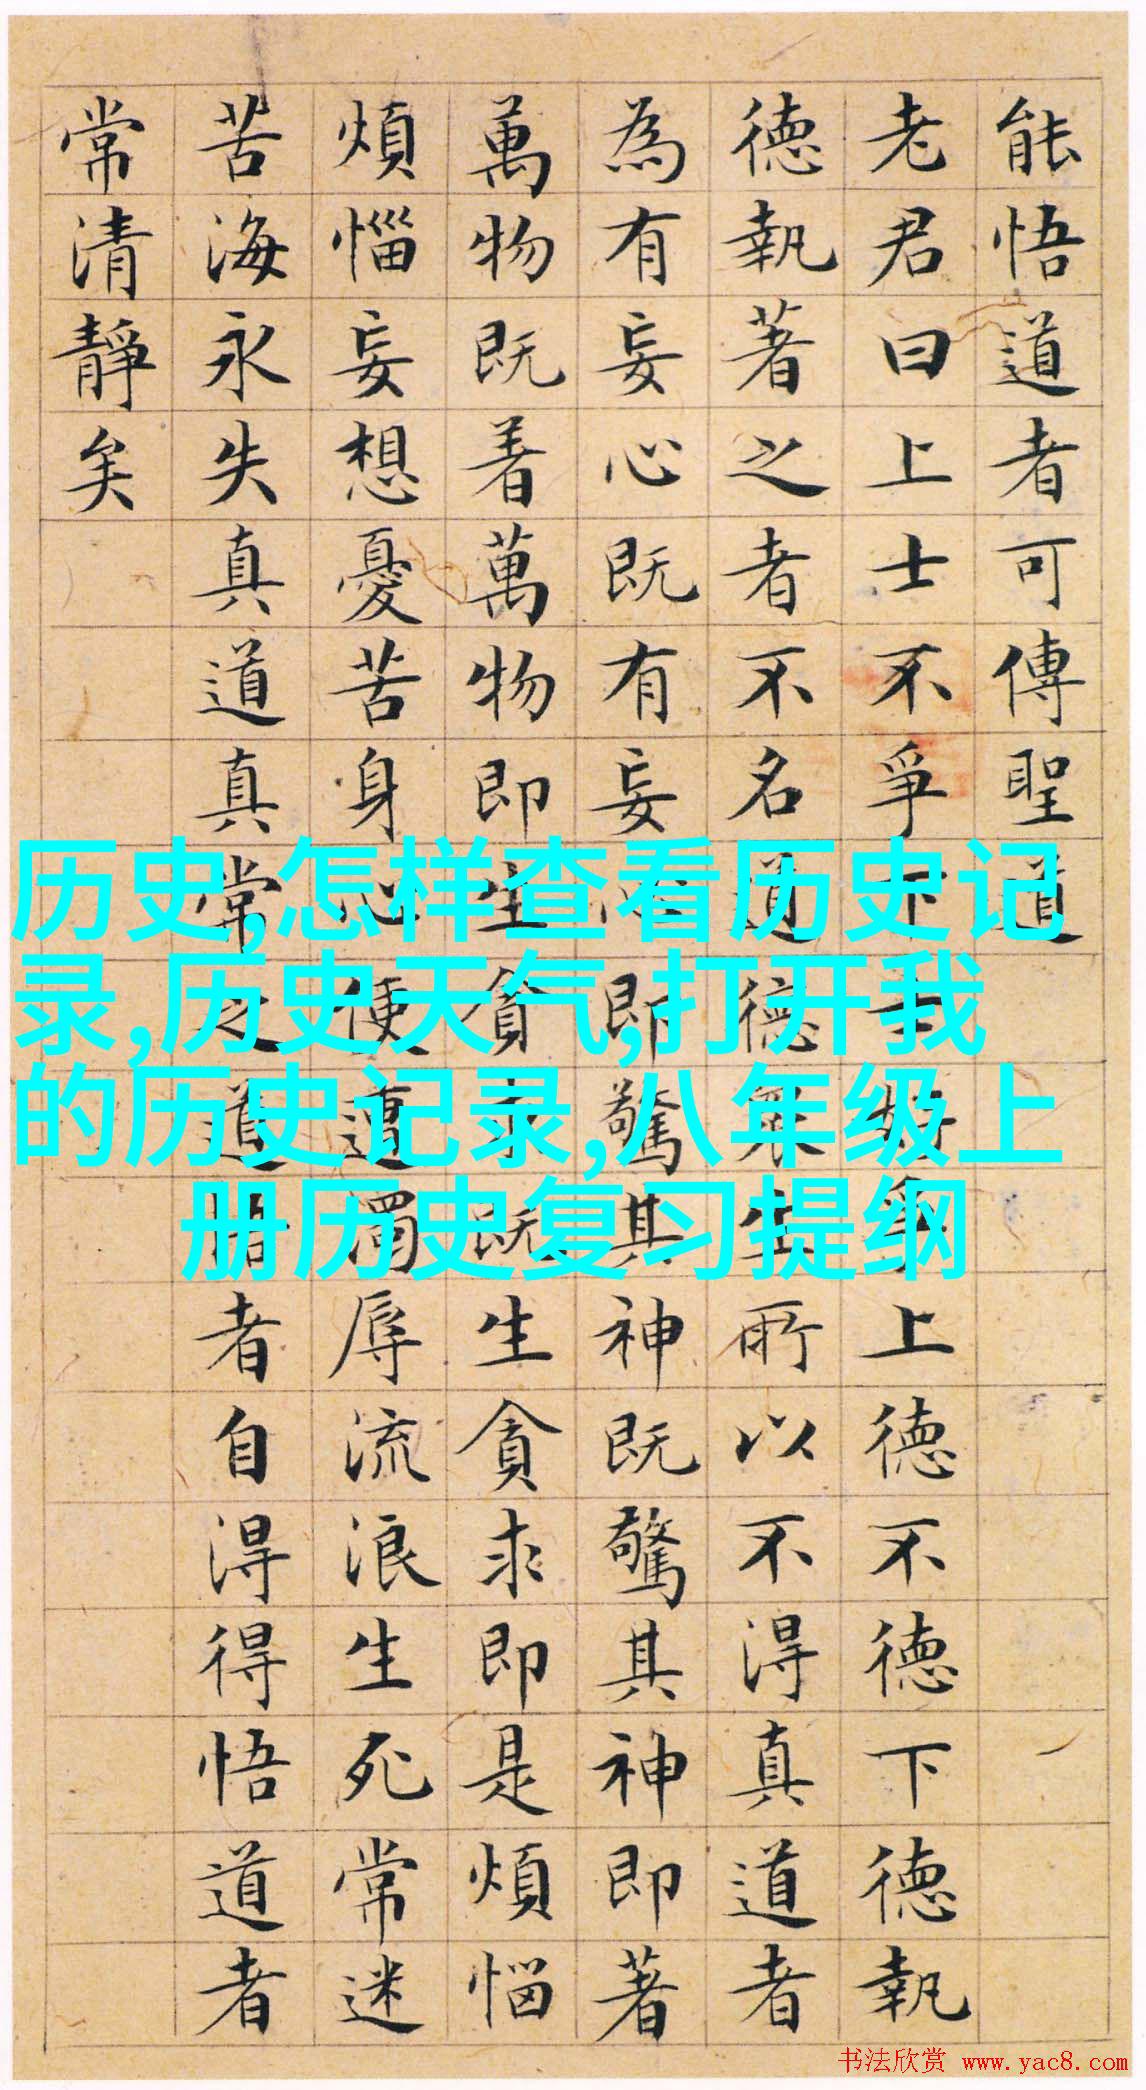 能悟道者可傳聖道
老君曰上士不爭下士好爭上德不德下德執
德執著之者不名道德眾生所以不得真道者
為有妄心既有妄心即驚其神既驚其神即著
萬物既着萬物即生貪求既生貪求即是煩惱
煩惱妄想憂苦身心便遭濁辱流浪生死常迷
苦海永失真道真常之道悟者自得得悟道者
常清靜矣
历史,怎样查看历史记
录,历史天气,打开我
的历史记录,八年级上
册历史复习提纲
书法欣赏 www.yac8.com